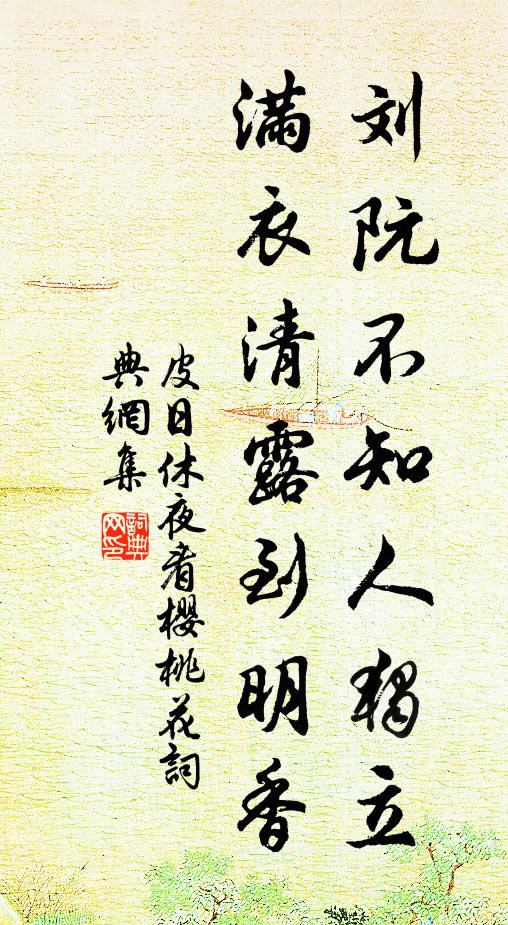 刘阮不知人獨立
滿衣清露到明香
皮日休夜看櫻桃花詞
典網集
詞典
网印